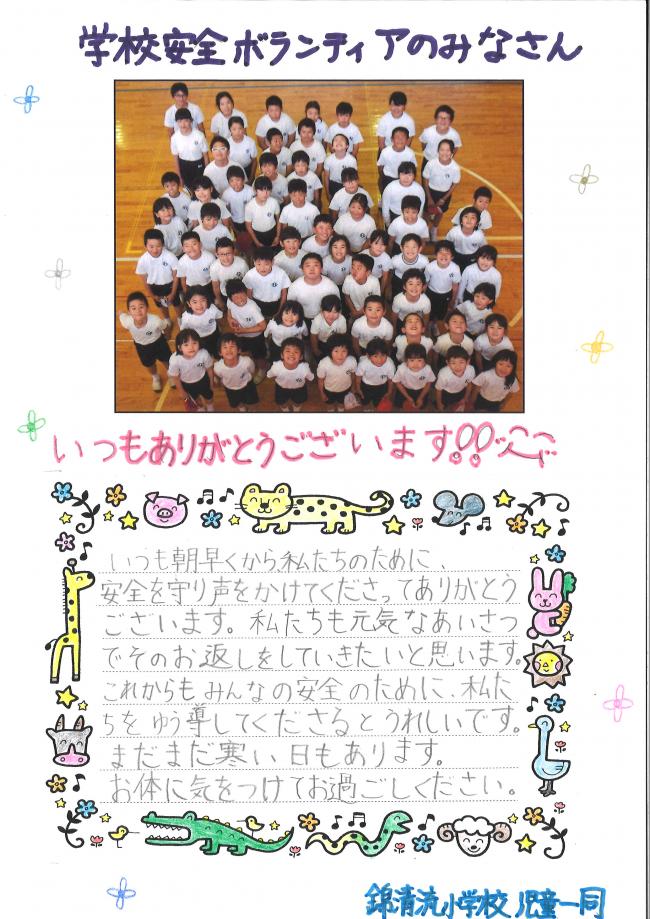 学校安全ボランティアのみなさん
いつもありがとうございます!!
いつも朝早くから私たちのために、
安全を守り声をかけてくださってありがとう
ございます。私たちも元気なあいさつ
でそのお返しをしていきたいと思います。
これからもみんなの安全のために、私た
ちをゆう導してくださるとうれしいです。
まだまだ寒い日もあります。
お体に気をつけてお過ごしください。
錦清流小学校 児童一同